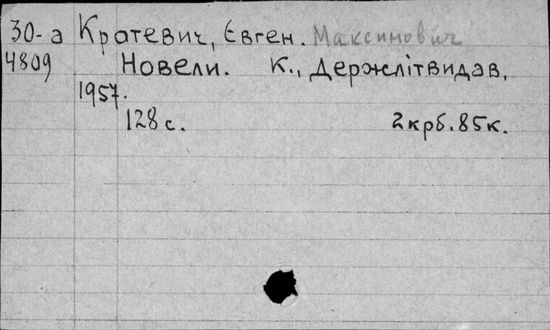 30-а Кротевич, Євген. Максимович
4809 Новели. К., Держлітвидав,
1957.
128 с. 2 крб. 85 к.